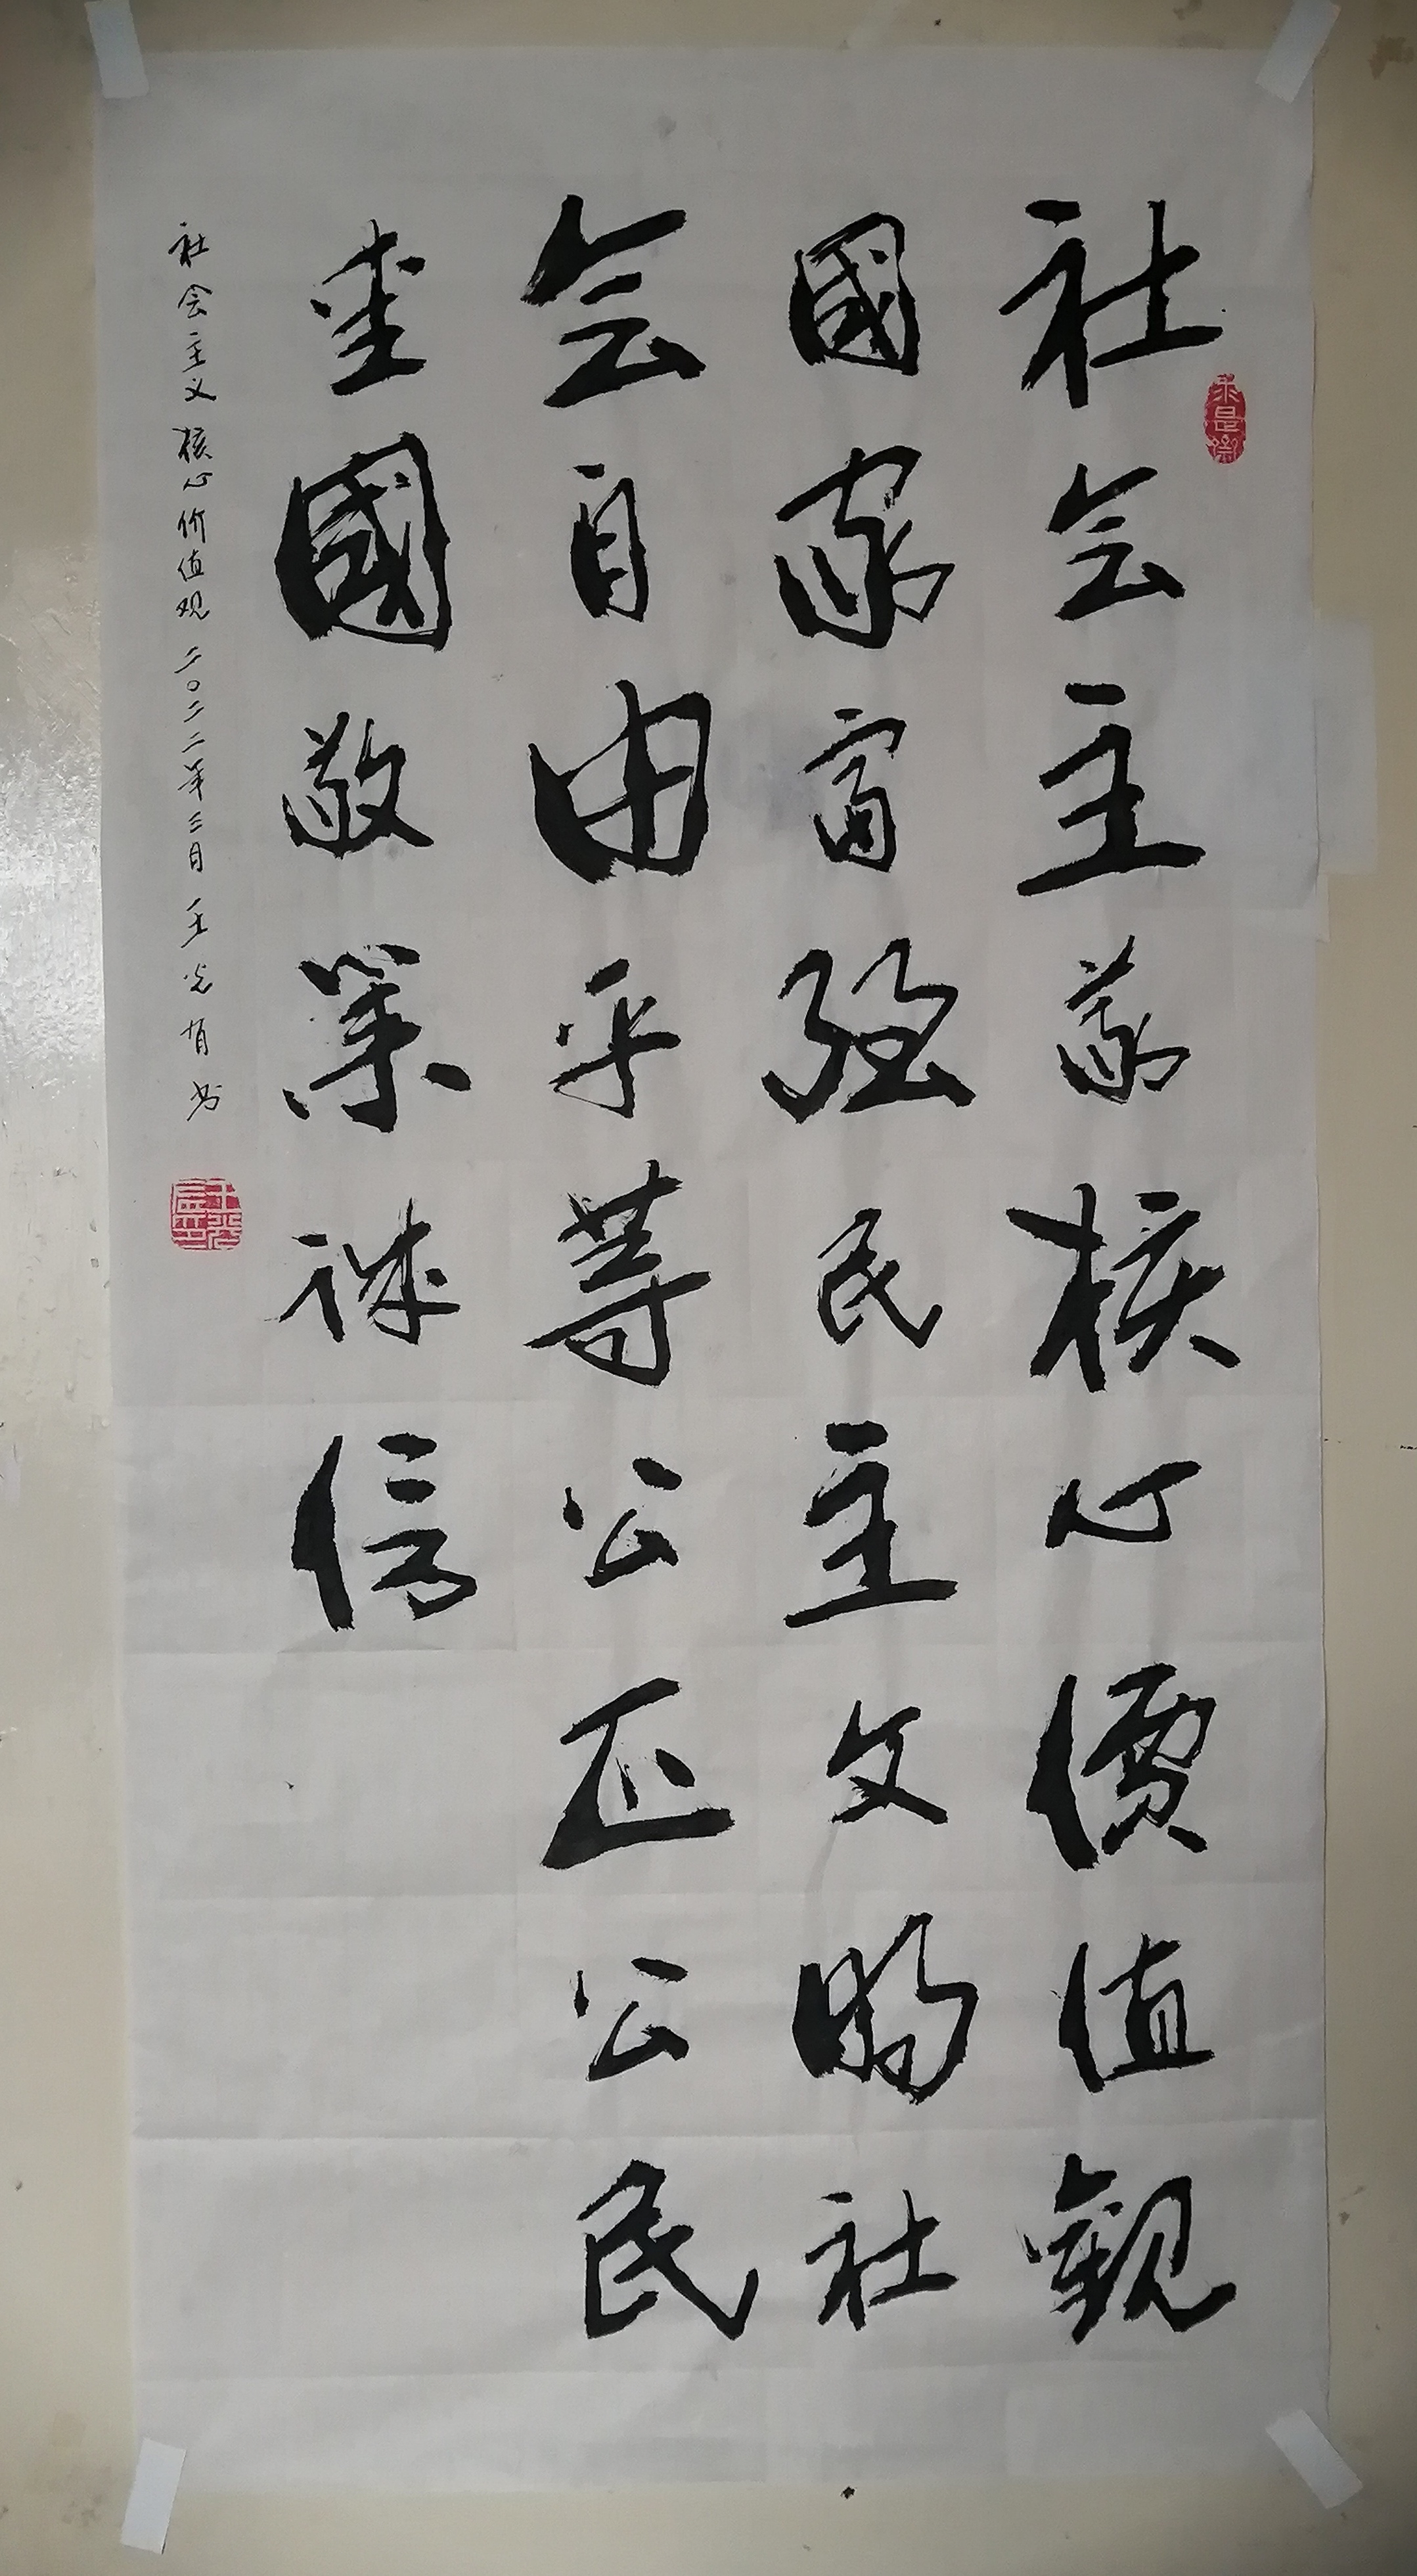 社会主義核心價值觀
國家富强民主文明社
会自由平等公正公民
爱國敬業诚信
社会主义核心价值观 二〇二二年三月 王光 书